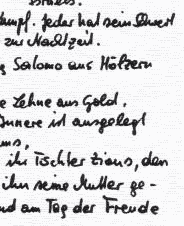 Israels.
Kampf. Jeder hat sein Schwert
zur Nachtzeit.
Salomo aus Hölzern
Lehne aus Gold,
Innere ist ausgelegt
ihr Töchter Zions, den
ihn seine Mutter ge-
am Tag der Freude